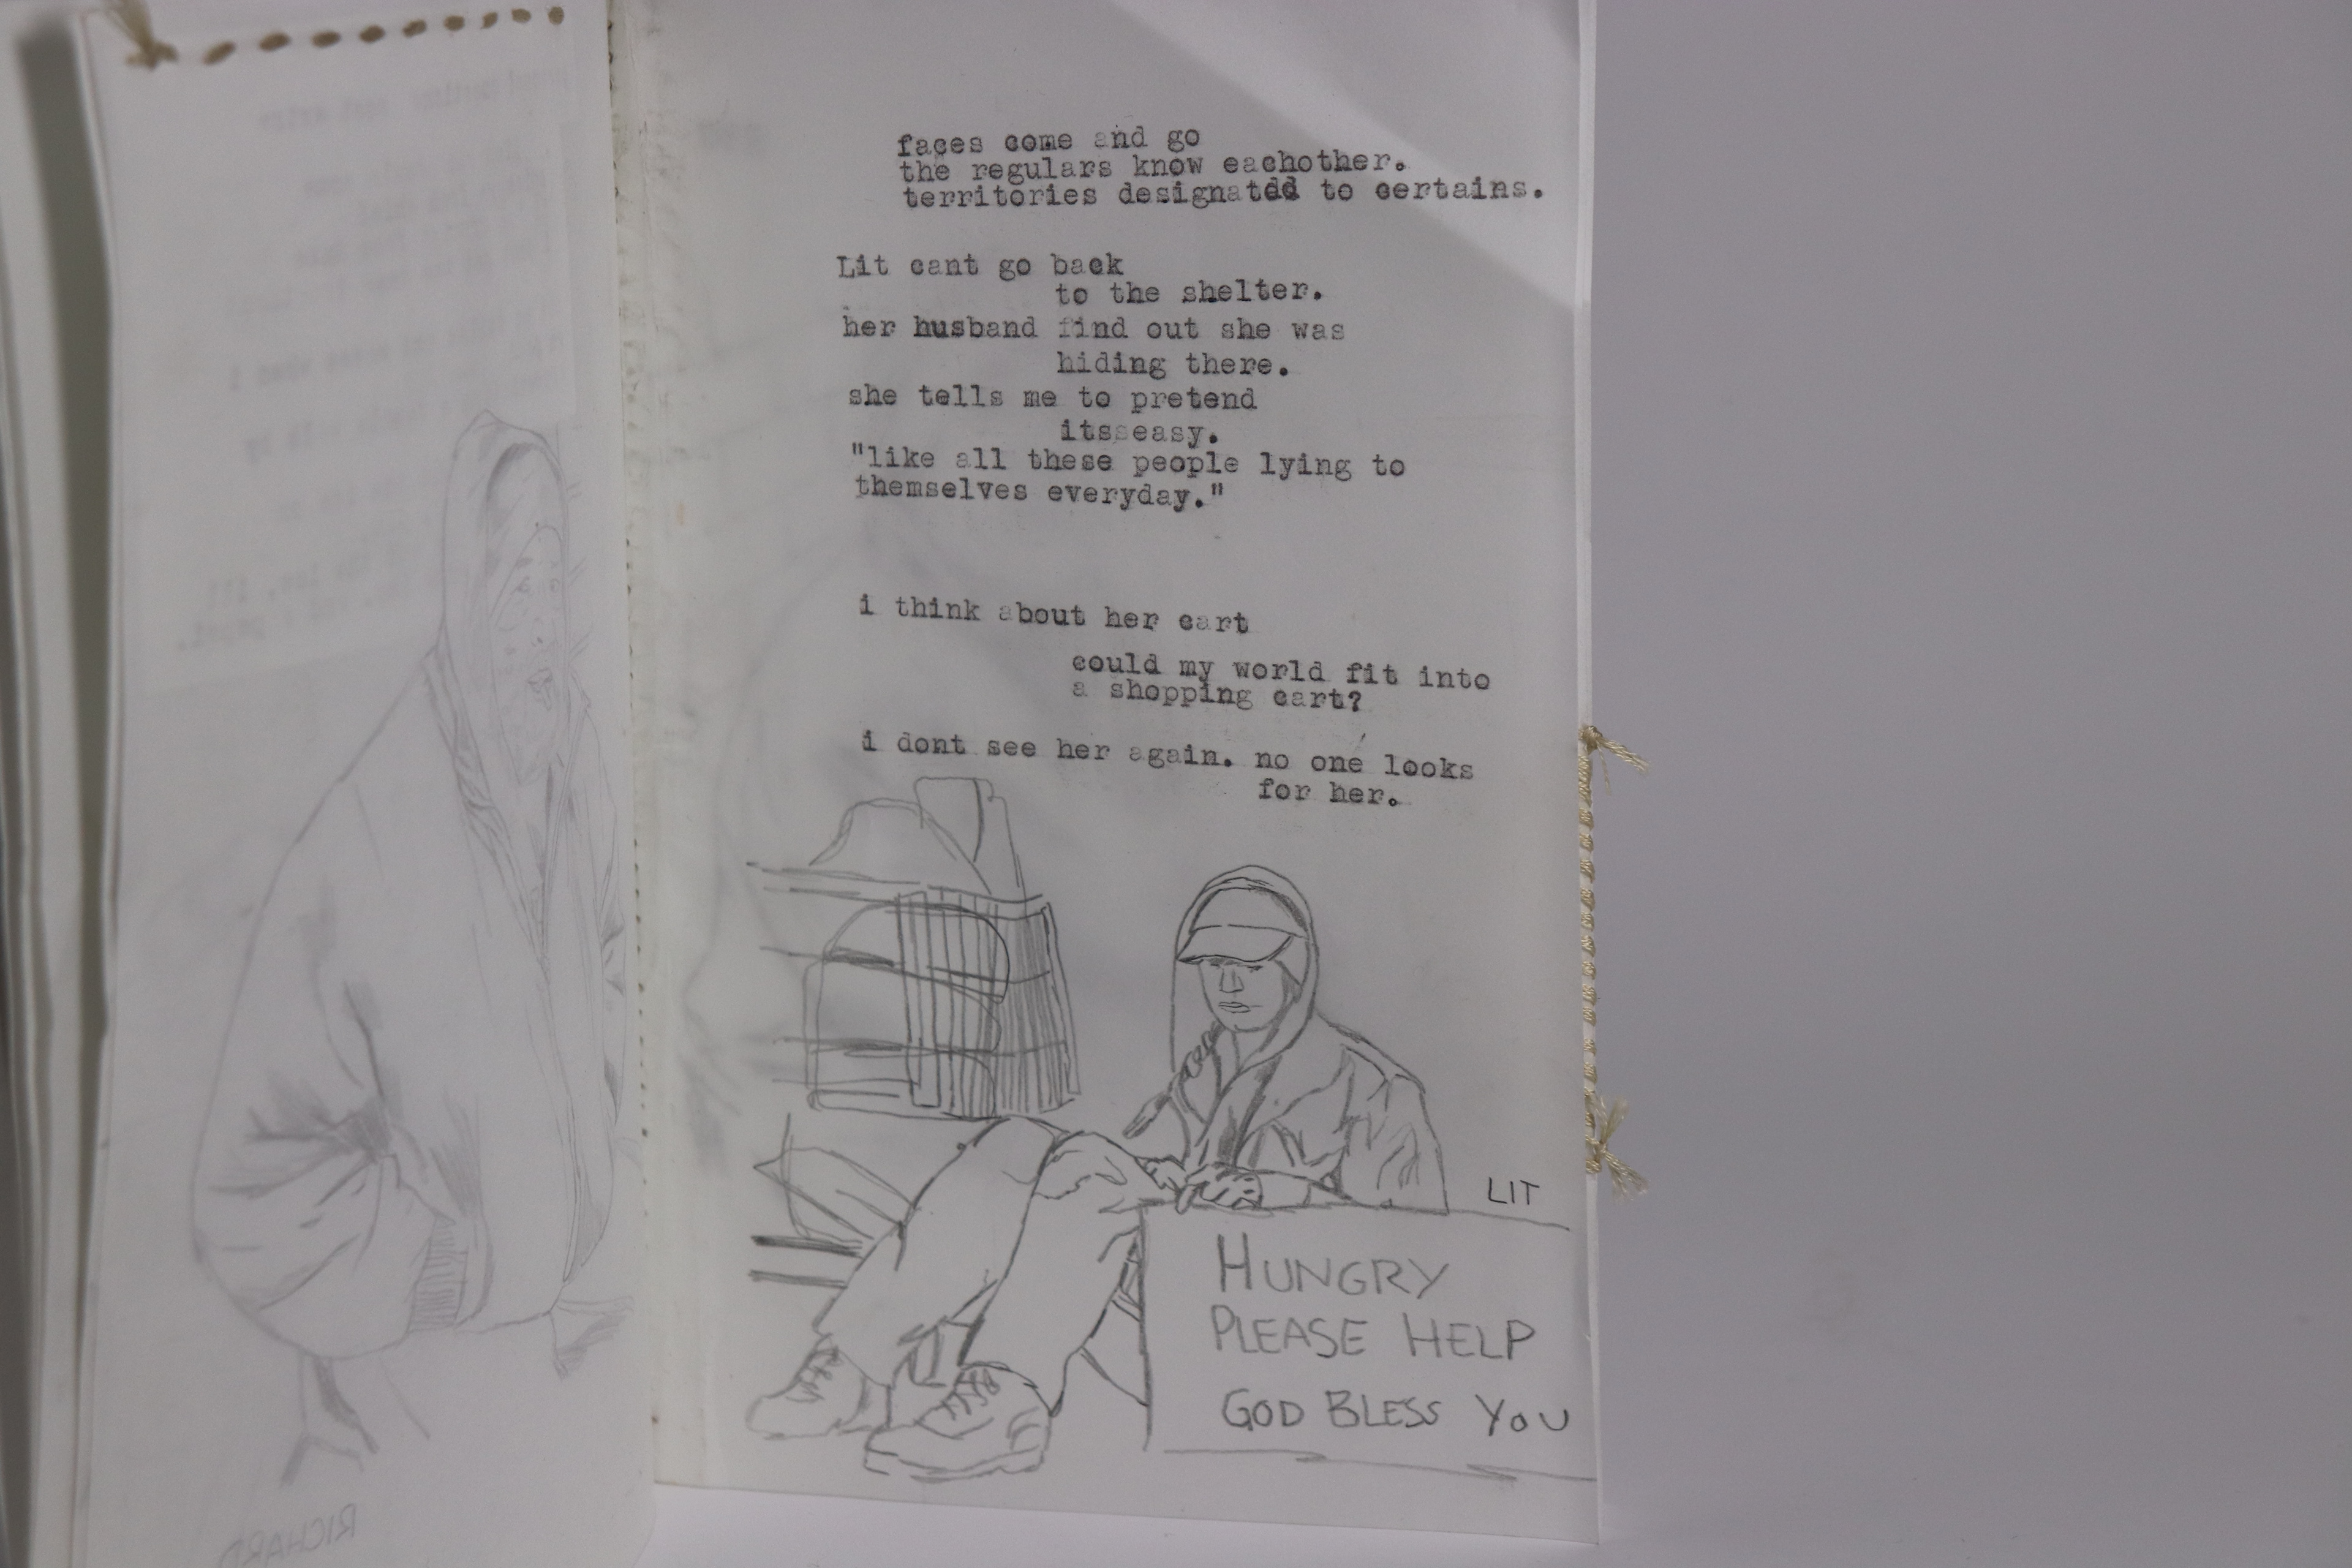 faces come and go
the regulars know eachother.
territories designatdd to certains.
Lit cant go back
to the shelter.
her husband find out she was
hiding there.
she tells me to pretend
itsseasy.
"like all these people lying to
themselves everyday."
i think about her cart
could my world fit into
a shopping cart?
i dont see her again. no one looks
for her.
LIT
HUNGRY
PLEASE HELP
GOD BLESS YOU
RICHARD